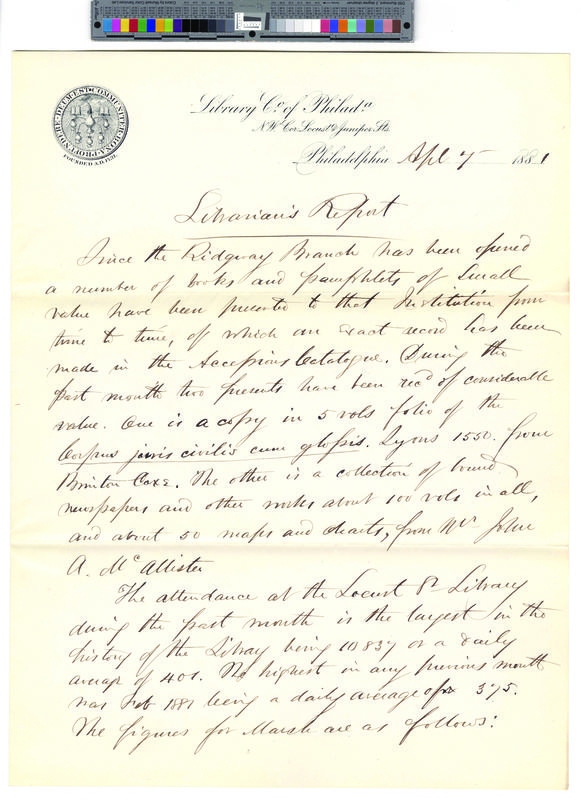 COMMUNITER·BONA·PROFUNDERE·DEUM·EST
FOUNDED A.D. 1731.
Library Co. of Philada.
N.W. Cor. Locust & Juniper Sts.
Philadelphia Apl 7 1881
Librarian's Report
Since the Ridgway Branch has been opened
a number of books and pamphlets of small
value have been presented to that Institution from
time to time, of which an exact record has been
made in the Accessions Catalogue. During the
past month two presents have been recd of considerable
value. One is a copy in 5 vols folio of the
Corpus juris civilis cum glossis. Lyons 1550. from
Brinton Coxe. The other is a collection of bound
newspapers and other works about 100 vols in all,
and about 50 maps and charts, from Mr John
A. McAllister
The attendance at the Locust St Library
during the past month is the largest in the
history of the Library being 10837 or a daily
average of 401. The highest in any previous month
was Feb 1881 being a daily average of 375.
The figures for March are as follows: